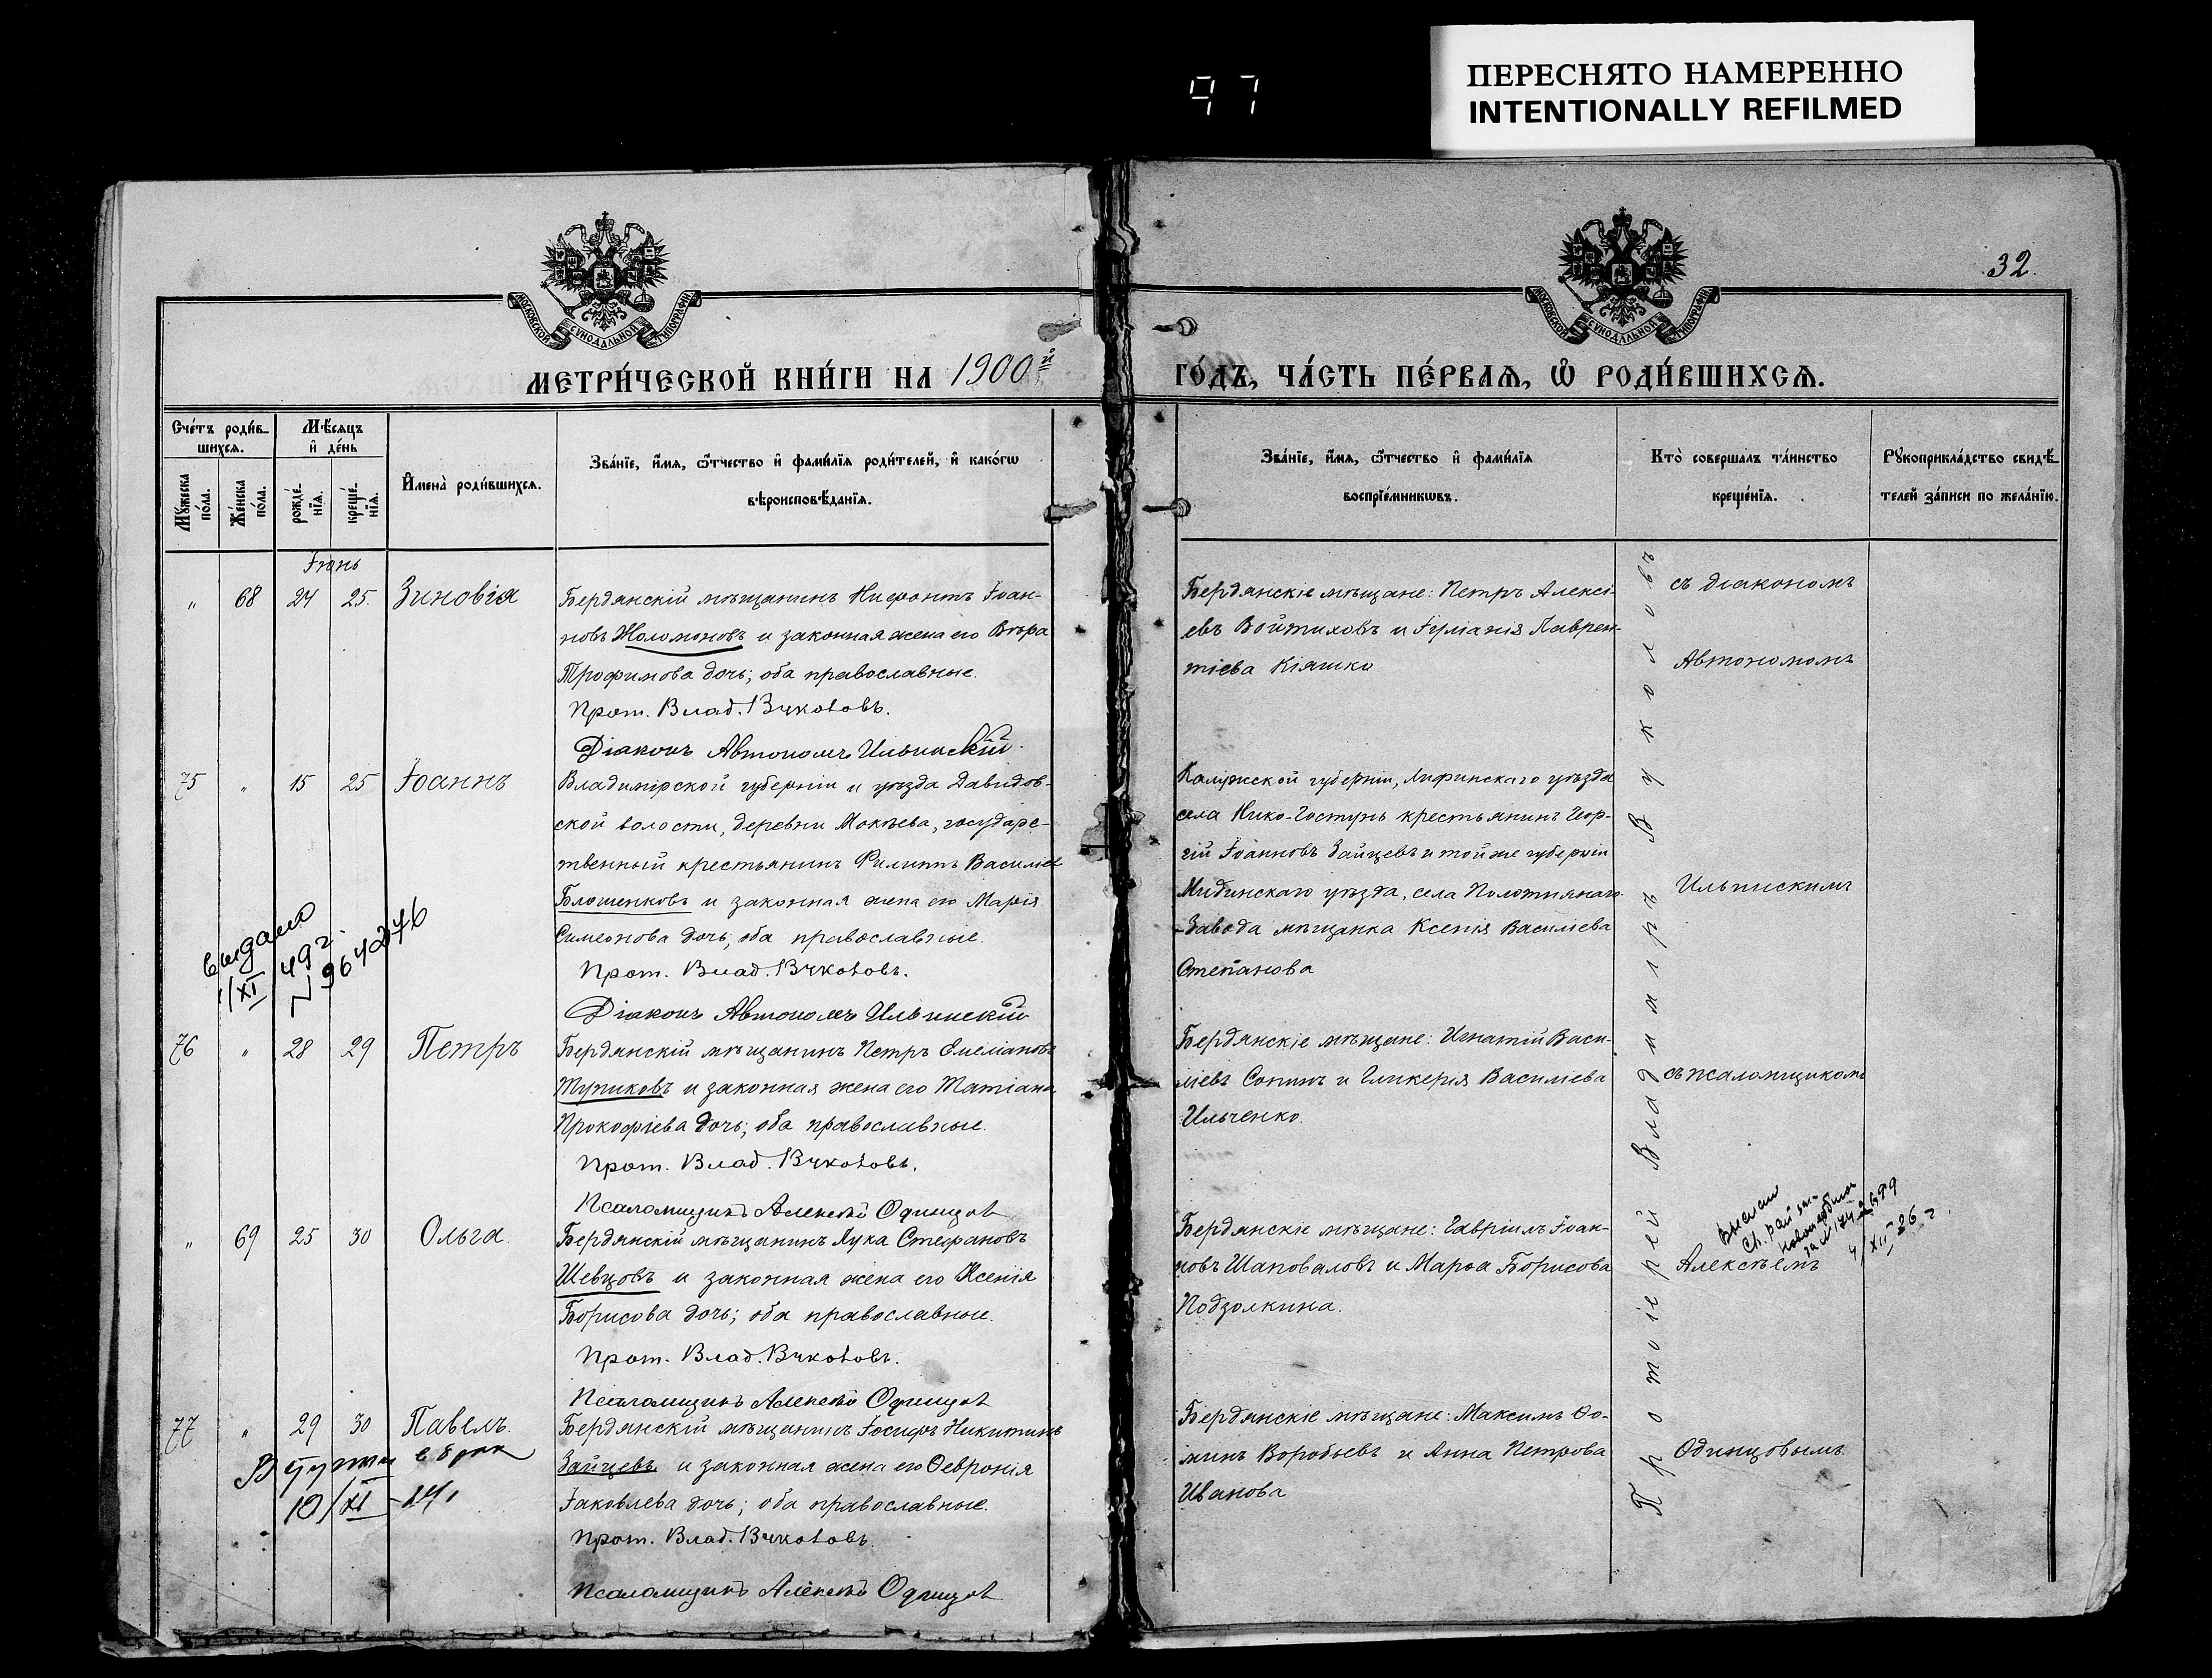 97
ПЕРЕСНЯТО НАМЕРЕННО
INTENTIONALLY REFILMED
32.
МОСКОВСКОЙ СѴНОДАЛЬНОЙ ТИПОГРАФІИ
МОСКОВСКОЙ СѴНОДАЛЬНОЙ ТИПОГРАФІИ
МЕТРИ́ЧЕСКОЙ КНИ́ГИ НА 1900й
ГО́ДЪ, ЧА́СТЬ ПЕ́РВАѦ, Ѽ РОДИ́ВШИХСѦ.
Сче́тъ роди́в-
шихсѧ.
Мѣ́сѧцъ
и҆ де́нь
Мꙋ́жеска по́ла.
Же́нска по́ла.
рожде́-нїѧ.
креще́-нїѧ.
И҆мена̀ роди́вшихсѧ.
Зва́нїе, и҆́мѧ, ѻ҆́тчество и҆ фами́лїѧ роди́телей, и҆ како́гѡ
вѣроисповѣ́данїѧ.
Зва́нїе, и҆́мѧ, ѻ҆́тчество и҆ фами́лїѧ
воспрїе́мникѡвъ.
Кто̀ соверша́лъ та́инство
креще́нїѧ.
Рꙋкоприкла́дство свидѣ́-
телей за́писи по жела́нїю.
Іюнь
" 68 24 25. Зиновія
Бердянскій мѣщанинъ Нифонтъ Іоан-
новъ Холомоновъ и законная жена его Вѣра
Трофимова дочь; оба православные.
Прот. Влад. Вуколовъ.
Діаконъ Автономъ Ильинскій.
Бердянскіе мѣщане: Петръ Алексі-
евъ Войтиховъ и Іуліанія Лаврен-
тіева Кіяшко
съ діакономъ
Автономомъ
75 " 15 25 Іоаннъ
Владимірской губерніи и уѣзда Давидов-
ской волости, деревни Мокѣева, государс-
твенный крестьянинъ Филиппъ Василіев
Блошенковъ и законная жена его Марія
Симеонова дочь, оба православные.
Прот. Влад. Вуколовъ.
Діаконъ Автономъ Ильинскій
Калужской губерніи, Лифинскаго уѣзда
села Нико-Гостунь крестьянинъ Геор-
гій Іоанновъ Зайцевъ и той же губерніи
Мидинскаго уѣзда, села Полотнянаго-
-Завода мѣщанка Ксенія Василіева
Степанова
Ильинскимъ
выдано
1/XI 49 г.
N 9642876
76 " 28 29 Петръ
Бердянскій мѣщанинъ Петръ Емеліановъ
Тупиковъ и законная жена его Татіана
Прокофіева дочь; оба православные.
Прот. Влад. Вуколовъ.
Псаломщикъ Алексѣй Одинцов
Бердянскіе мѣщане: Игнатій Васи-
ліевъ Сопинъ и Гликерія Василіева
Ильченко.
съ псаломщикомъ
" 69 25 30 Ольга.
Бердянскій мѣщанинъ Лука Стефановъ
Шевцовъ и законная жена его Ксенія
Борисова дочь; оба православные.
Прот. Влад. Вуколовъ.
Псаломщикъ Алексѣй Одинцов
Бердянскіе мѣщане: Гавріилъ Іоан-
новъ Шаповаловъ и Марѳа Борисова
Подзолкина.
Алексѣемъ
XII 36 г.
77 " 29 30 Павелъ.
Бердянскій мѣщанинъ Іосифъ Никитинъ
Зайцевъ и законная жена его Ѳевронія
Іаковлева дочь; оба православные.
Прот. Влад. Вуколовъ.
Псаломщикъ Алексѣй Одинцов
Бердянскіе мѣщане: Максимъ Ѳо-
минъ Воробьевъ и Анна Петрова
Иванова
Одинцовымъ.
В брак
10/XI-24.
Протоіерей Владиміръ Вуколовъ